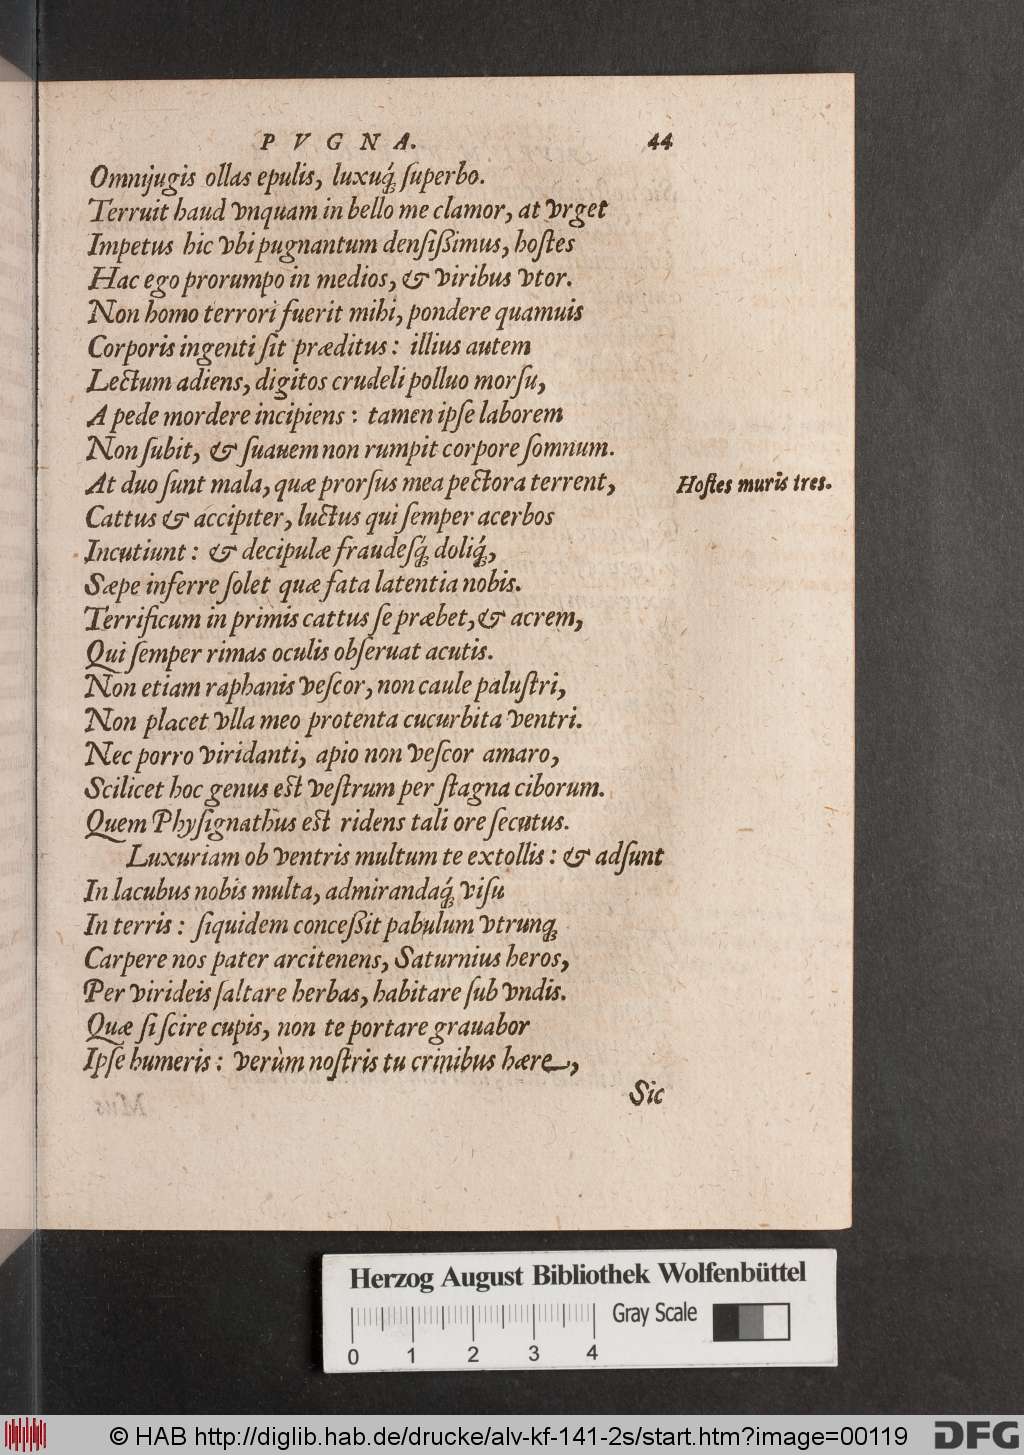 P V G N A. 44
Omnijugis ollas epulis, luxuq́; ſuperbo.
Terruit haud vnquam in bello me clamor, at vrget
Impetus hic vbi pugnantum denſißimus, hoſtes
Hac ego prorumpo in medios, & viribus vtor.
Non homo terrori fuerit mihi, pondere quamuis
Corporis ingenti ſit præditus: illius autem
Lectum adiens, digitos crudeli polluo morſu,
A pede mordere incipiens: tamen ipſe laborem
Non ſubit, & ſuauem non rumpit corpore ſomnum.
At duo ſunt mala, quæ prorſus mea pectora terrent,
Hoſtes muris tres.
Cattus & accipiter, luctus qui ſemper acerbos
Incutiunt: & decipulæ fraudeſq́; doliq́;,
Sæpe inferre ſolet quæ fata latentia nobis.
Terrificum in primis cattus ſe præbet, & acrem,
Qui ſemper rimas oculis obſeruat acutis.
Non etiam raphanis veſcor, non caule paluſtri,
Non placet vlla meo protenta cucurbita ventri.
Nec porro viridanti, apio non veſcor amaro,
Scilicet hoc genus est veſtrum per ſtagna ciborum.
Quem Phyſignathus est ridens tali ore ſecutus.
Luxuriam ob ventris multum te extollis: & adſunt
In lacubus nobis multa, admirandaq́; viſu
In terris: ſiquidem conceßit pabulum vtrunq;
Carpere nos pater arcitenens, Saturnius heros,
Per virideis ſaltare herbas, habitare ſub vndis.
Quæ ſi ſcire cupis, non te portare grauabor
Ipſe humeris: verùm noſtris tu crinibus hære,
Sic
Herzog August Bibliothek Wolfenbüttel
Gray Scale
0 1 2 3 4
© HAB http://diglib.hab.de/drucke/alv-kf-141-2s/start.htm?image=00119
DFG